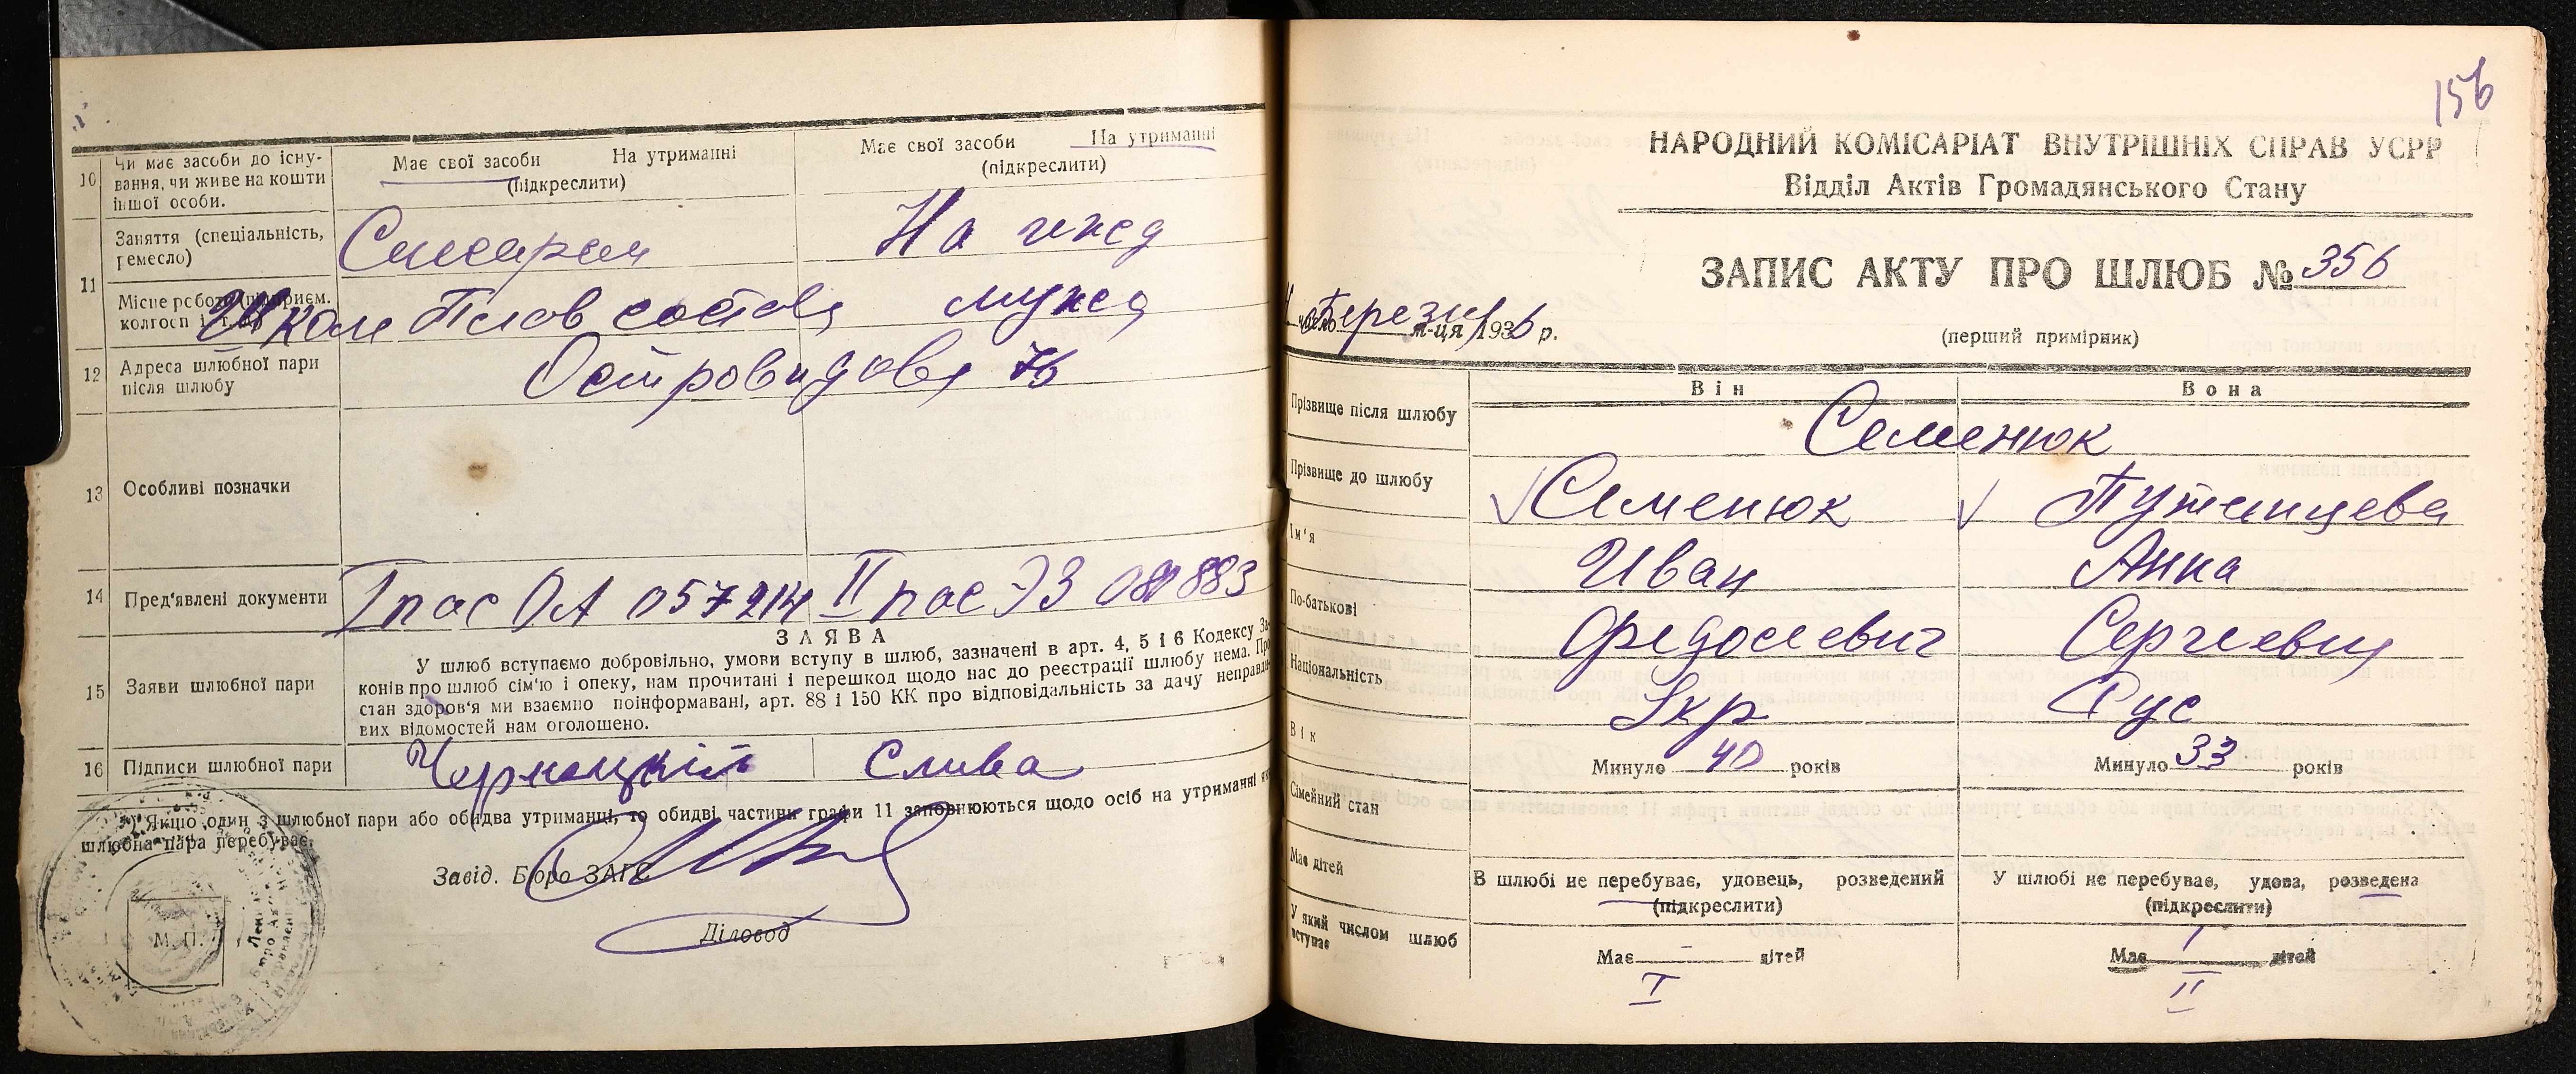 10
Чи має засоби до існу-
вання, чи живе на кошти
іншої особи.
Має свої засоби На утриманні
(підкреслити)
Має свої засоби На утриманні
(підкреслити)
11
Заняття (спеціальність,
ремесло)
Слесарем
На ижд
Місце роботи
колгосп
Школ Плов состова
мужа
12
Адреса шлюбної пари
після шлюбу
Островидова 76
13
Особливі позначки
14
Пред'явлені документи
I пас ОА 057214 II пас ЭЗ 081883
15
Заяви шлюбної пари
ЗАЯВА
У шлюб вступаємо добровільно, умови вступу в шлюб, зазначені в арт. 4, 5 і 6 Кодексу За-
конів про шлюб сім'ю і опеку, нам прочитані і перешкод щодо нас до реєстрації шлюбу нема. Про
стан здоров'я ми взаємно поінформавані, арт. 88 і 150 КК про відповідальність за дачу неправди-
вих відомостей нам оголошено.
16
Підписи шлюбної пари
Слива
*) Якщо один з шлюбної пари або обидва утриманці, то обидві частини графи 11 заповнюються щодо осіб на утриманні як
шлюбна пара перебуває.
Завід. Бюро ЗАГС
Діловод
М. П.
156
НАРОДНИЙ КОМІСАРІАТ ВНУТРІШНІХ СПРАВ УСРР
Відділ Актів Громадянського Стану
ЗАПИС АКТУ ПРО ШЛЮБ № 356
число Березня м-ця 1936 р.
(перший примірник)
Він Вона
Прізвище після шлюбу
Семенюк
Прізвище до шлюбу
Семенюк
Путинцева
Ім'я
Иван
Анна
По-батькові
Федосеевич
Сергиевн
Національність
Укр
Рус
Вік
Минуло 40 років
Минуло 33 років
Сімейний стан
В шлюбі не перебуває, удовець, розведений
(підкреслити)
У шлюбі не перебуває, удова, розведена
(підкреслити)
Має дітей
Має - дітей
Має 1 дітей
У який числом шлюб
вступає
I
II